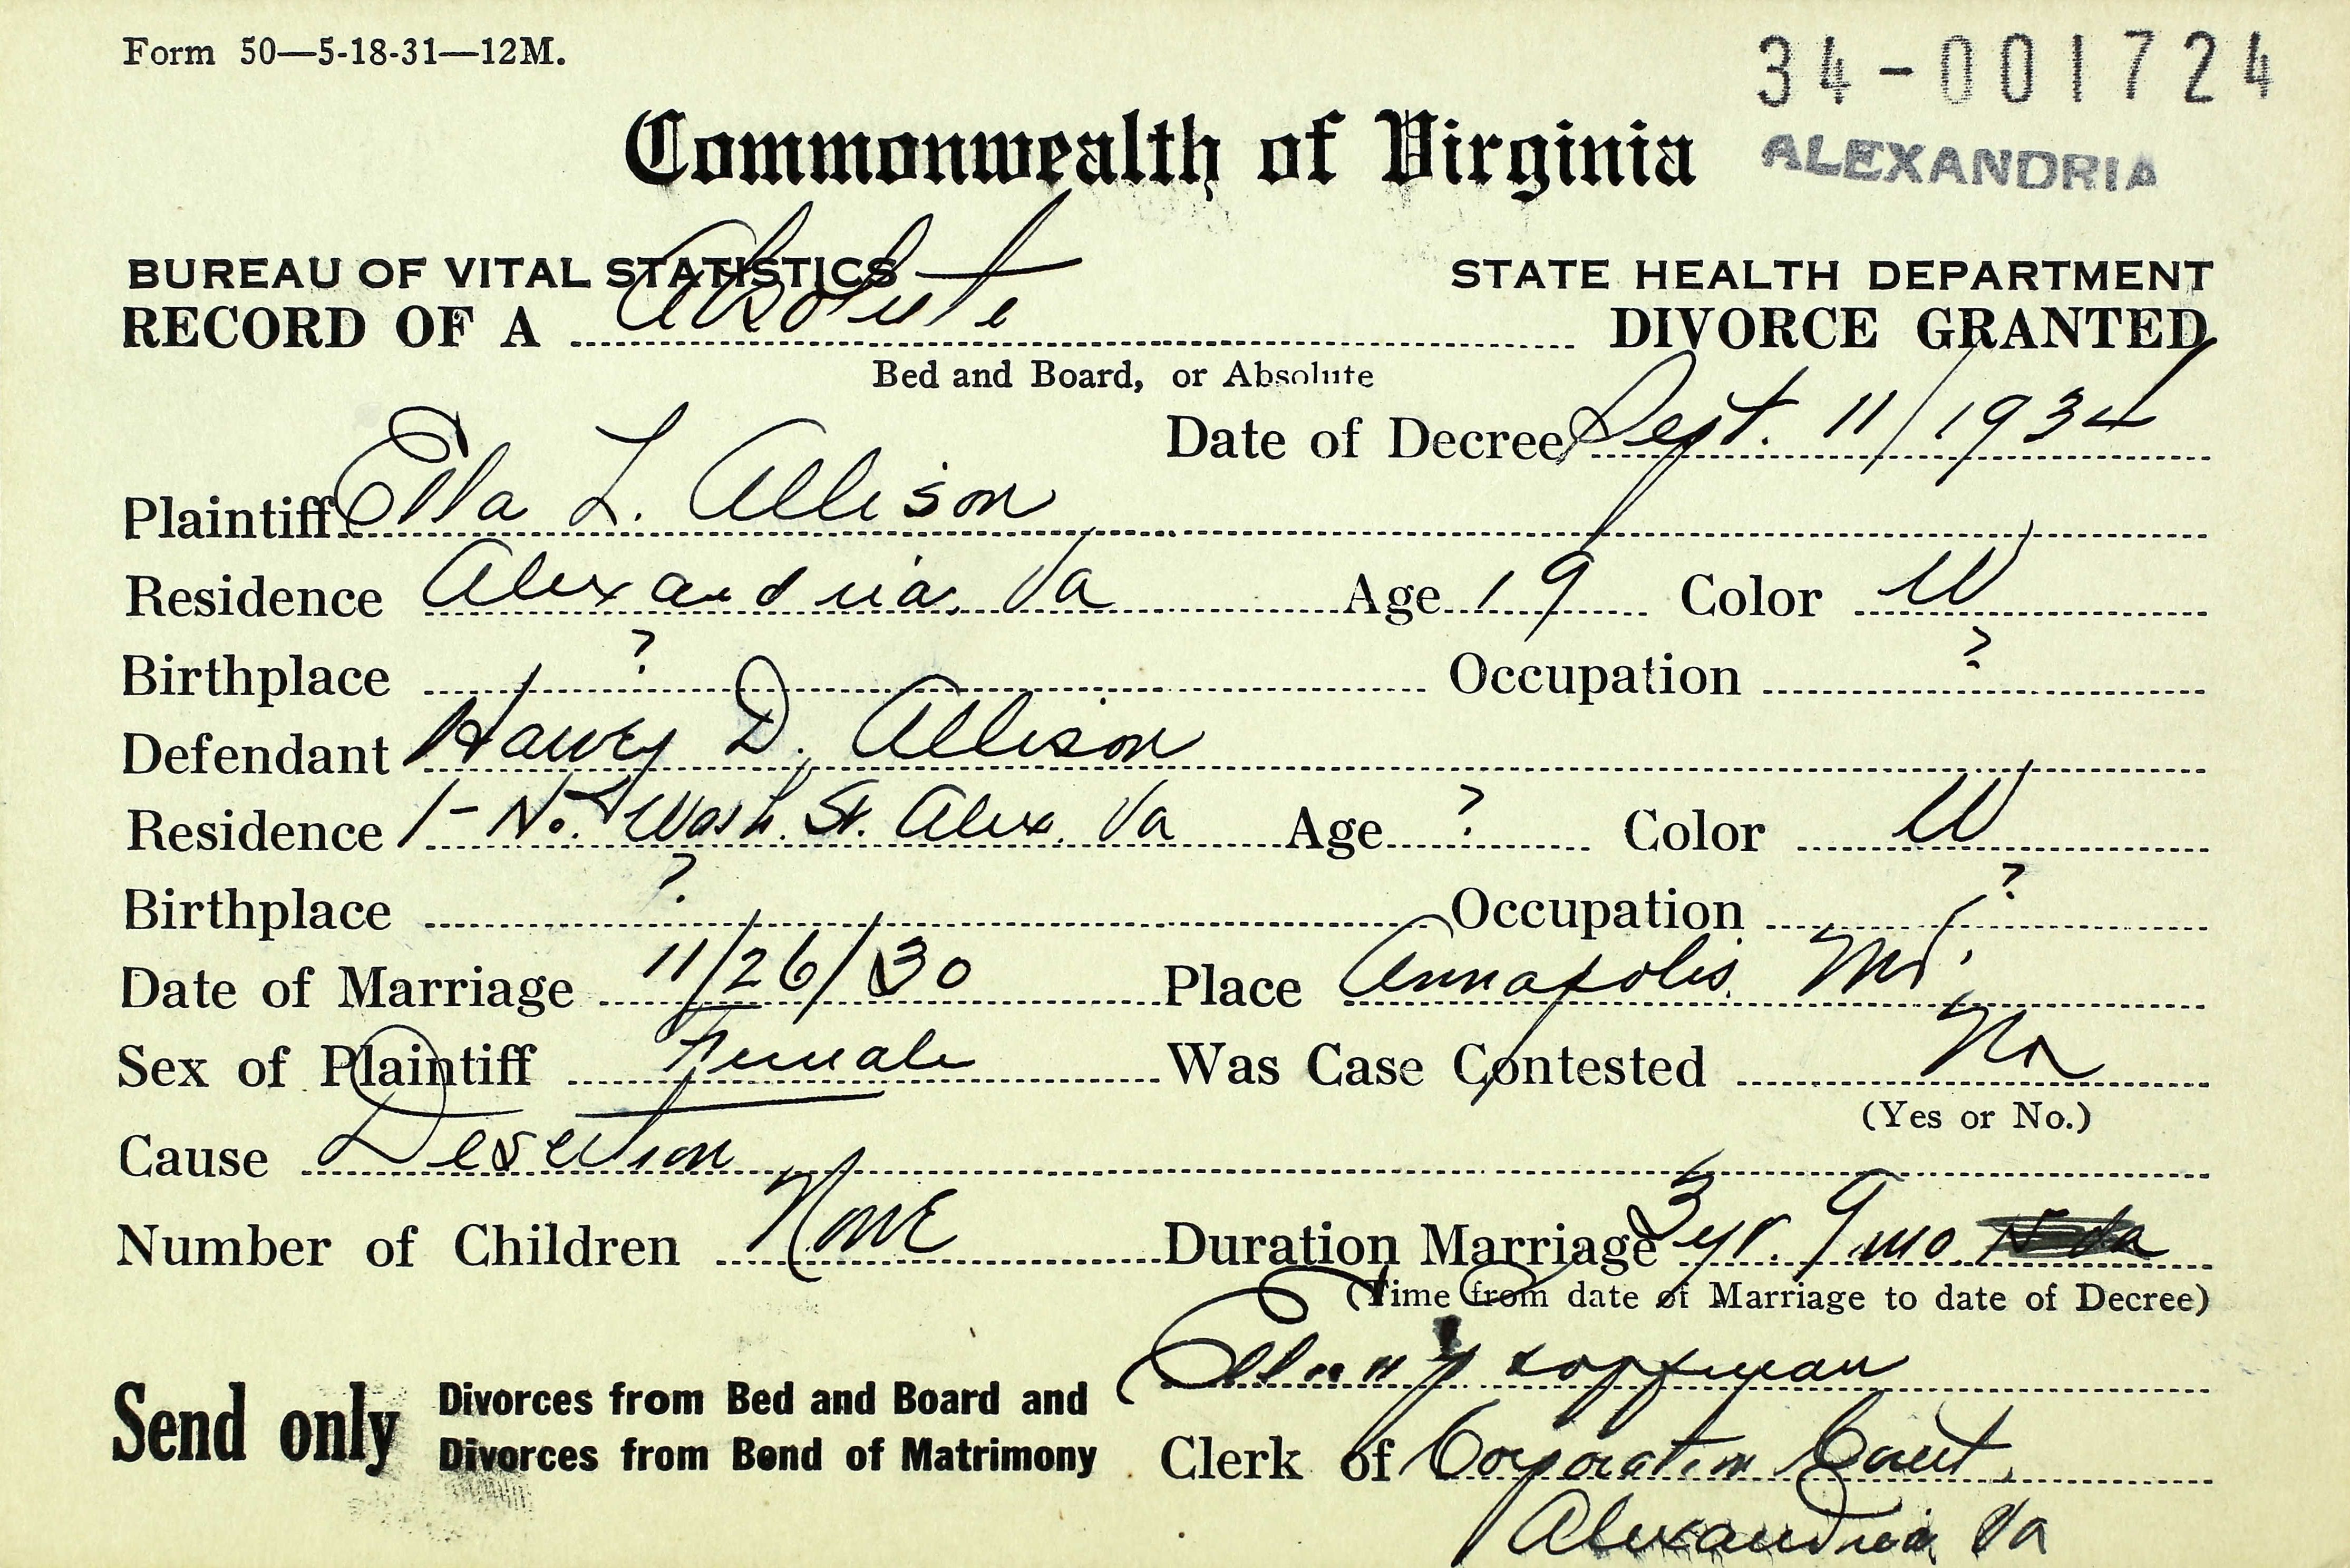 Form 50—5-18-31—12M.
34-001724
Commonwealth of Virginia
ALEXANDRIA
BUREAU OF VITAL STATISTICS STATE HEALTH DEPARTMENT
RECORD OF A Absolute DIVORCE GRANTED
Bed and Board, or Absolute
Date of Decree Sept. 11/1934
Plaintiff Ella L. Allison
Residence Alexandria, Va Age 19 Color W
Birthplace ? Occupation ?
Defendant Harvey D. Allison
Residence 1- No. Wash. St. Alex. Va Age ? Color W
Birthplace ? Occupation ?
Date of Marriage 11/26/30 Place Annapolis, Md.
Sex of Plaintiff Female Was Case Contested No
(Yes or No.)
Cause Desertion
Number of Children None Duration Marriage 3 yr. 9 mo.
(Time from date of Marriage to date of Decree)
Send only Divorces from Bed and Board and
Divorces from Bond of Matrimony
Clerk of Corporation Court,
Alexandria Va